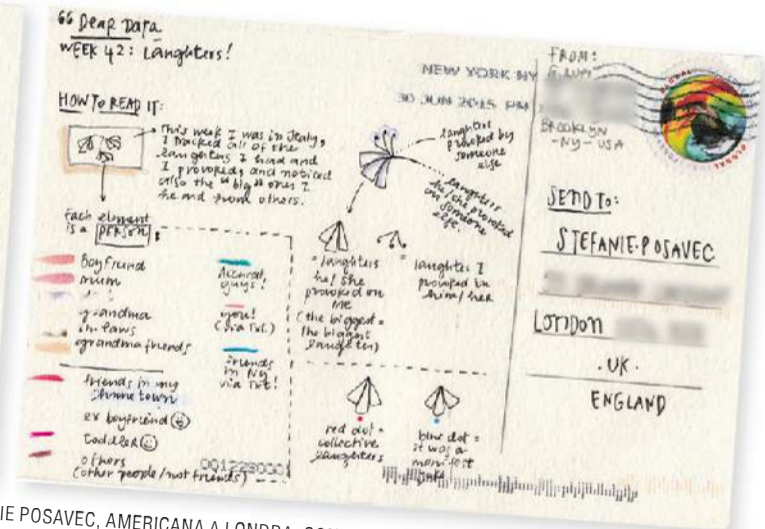 " DEAR DATA
WEEK 42: Laughters!
HOW TO READ IT:
This week I was in Italy,
I tracked all of the
laughters I had and
I provoked, and noticed
also the "big" ones I
heard from others.
Each element
is a PERSON:
Boyfriend
mum
grandma
in laws
grandma friends
friends in my
home town
ex boyfriend
toddler
others
(other people/not friends)
Accurat
guys!
you!
(via txt)
friends
in NY
via txt!
laughters
provoked by
someone
else
laughters
he/she provoked
on someone
else.
= laughters
he/she
provoked on
me
(the biggest =
the biggest
laughter)
= laughter I
provoked in
him/her
red dot =
collective
laughters
blue dot =
it was a
manifest
NEW YORK NY
30 JUN 2015 PM
FROM:
G. LUPI
BROOKLYN
- NY - USA
GLOBAL
SEND TO:
STEFANIE POSAVEC
LONDON
. UK .
ENGLAND
IE POSAVEC, AMERICANA A LONDRA